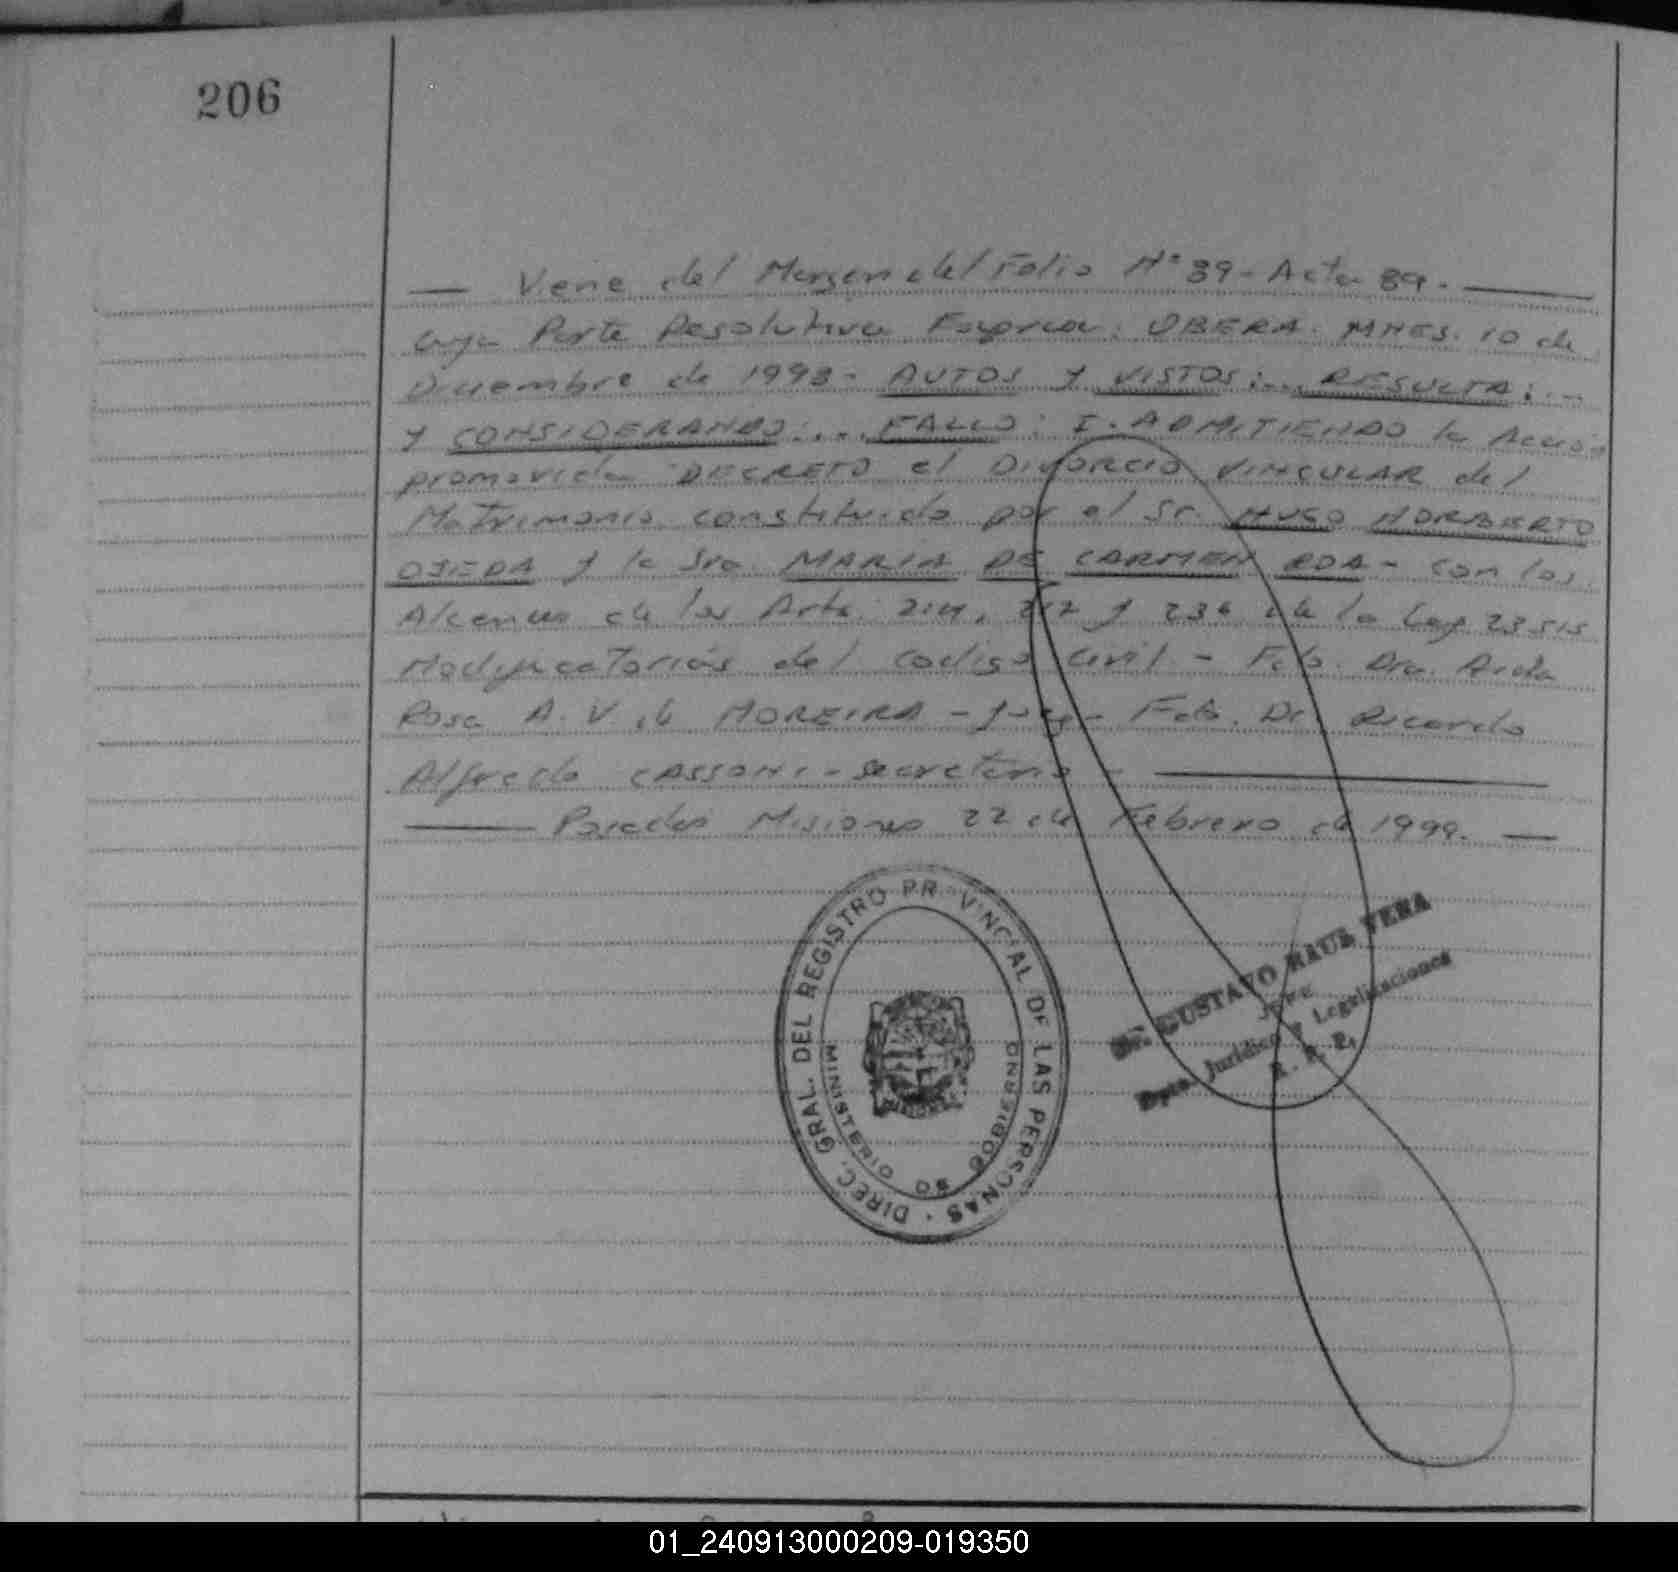 206
— Viene del Margen del Folio N° 89 - Acta 89. —
cuya Parte Resolutiva : OBERA. MNES. 10 de
Diciembre de 1998 - AUTOS Y VISTOS:... RESULTA:...
Y CONSIDERANDO:... FALLO: I. ADMITIENDO la Acción
promovida DECRETO el DIVORCIO VINCULAR del
Matrimonio constituido por el Sr. HUGO NORBERTO
OJEDA y la Sra. MARIA DE CARMEN ROA - con los
Alcances de los Arts. 214, 217 y 236 de la Ley 23515
Modificatorias del Codigo Civil - Fdo. Dra. Aida
Rosa A. V. de MOREIRA - Juez - Fdo. Dr. Ricardo
Alfredo CASSONI - Secretario - —
— Posadas Misiones 22 de Febrero de 1999. —
DIREC. GRAL. DEL REGISTRO PROVINCIAL DE LAS PERSONAS
MINISTERIO DE GOBIERNO
MISIONES
Dr. GUSTAVO RAUL VERA
JEFE
Dpto. Jurídico y Legalizaciones
R. P. P.
01_240913000209-019350